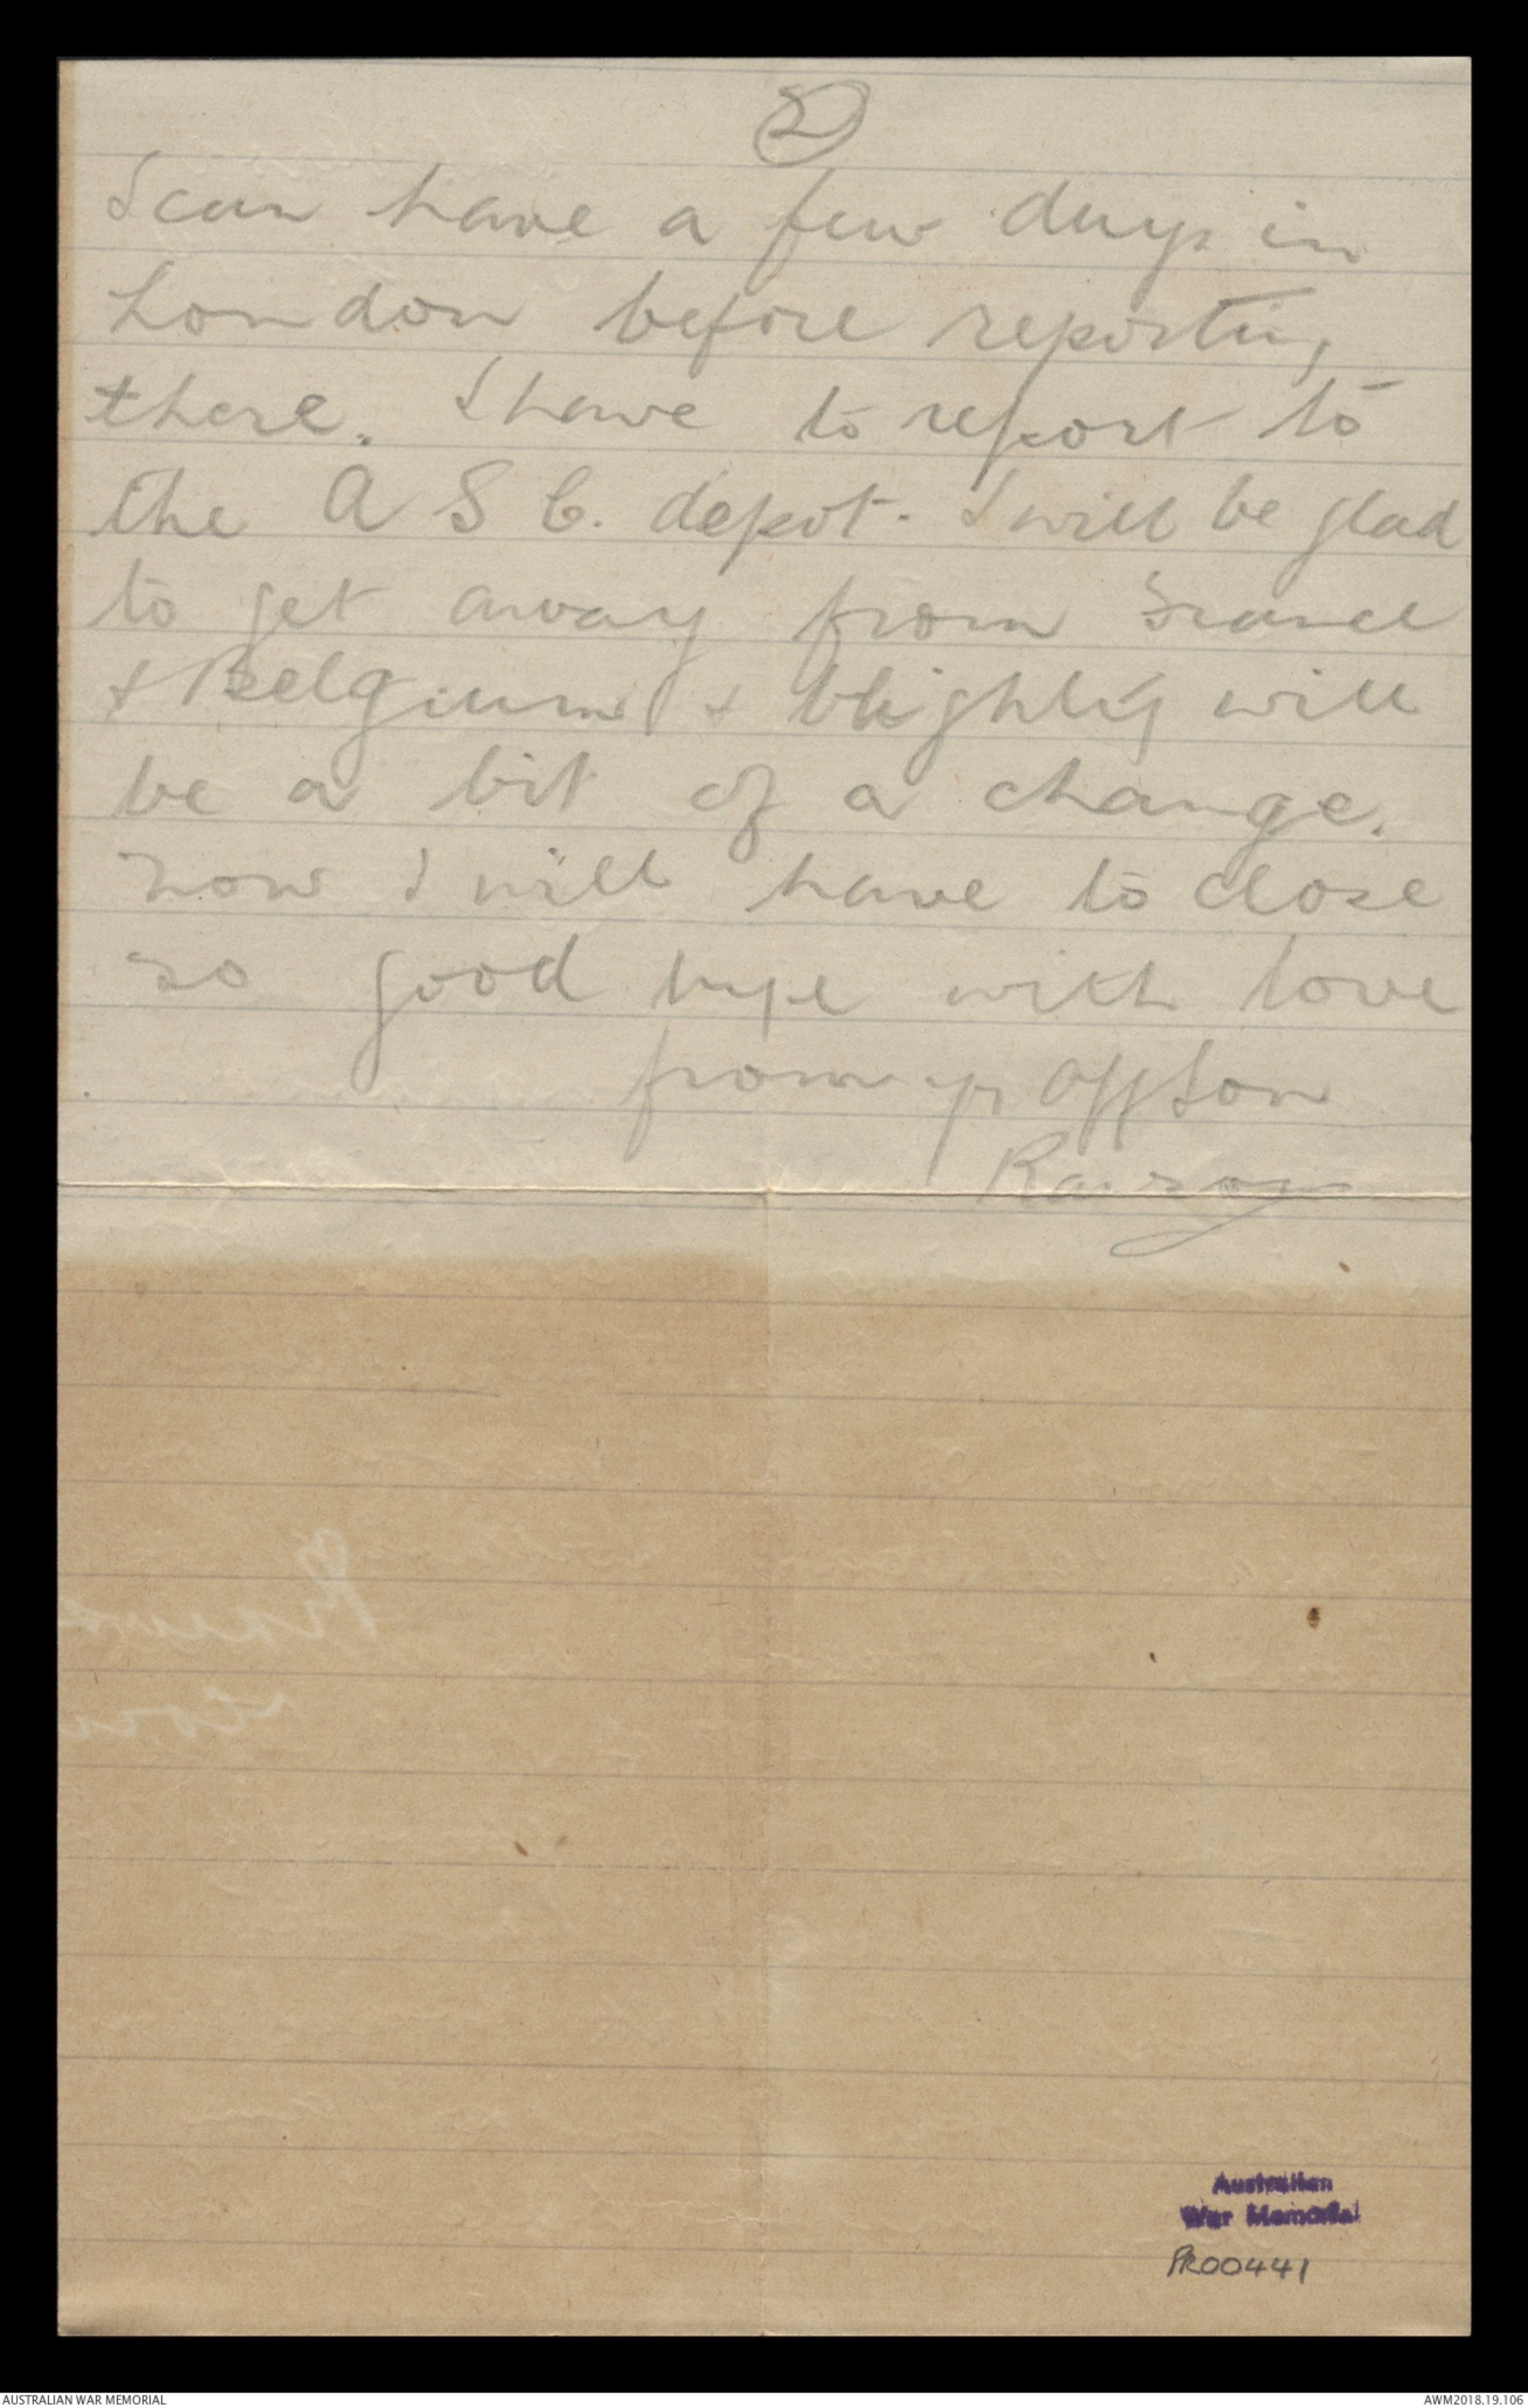 2
I can have a few days in
London before reporting
there. I have to report to
the A S C. depot. I will be glad
to get away from France
& Belgium & blighty will
be a bit of a change.
Now I will have to close
so good bye with love
from yr aff Son
Australian
War Memorial
PR00441
AUSTRALIAN WAR MEMORIAL
AWM2018.19.106